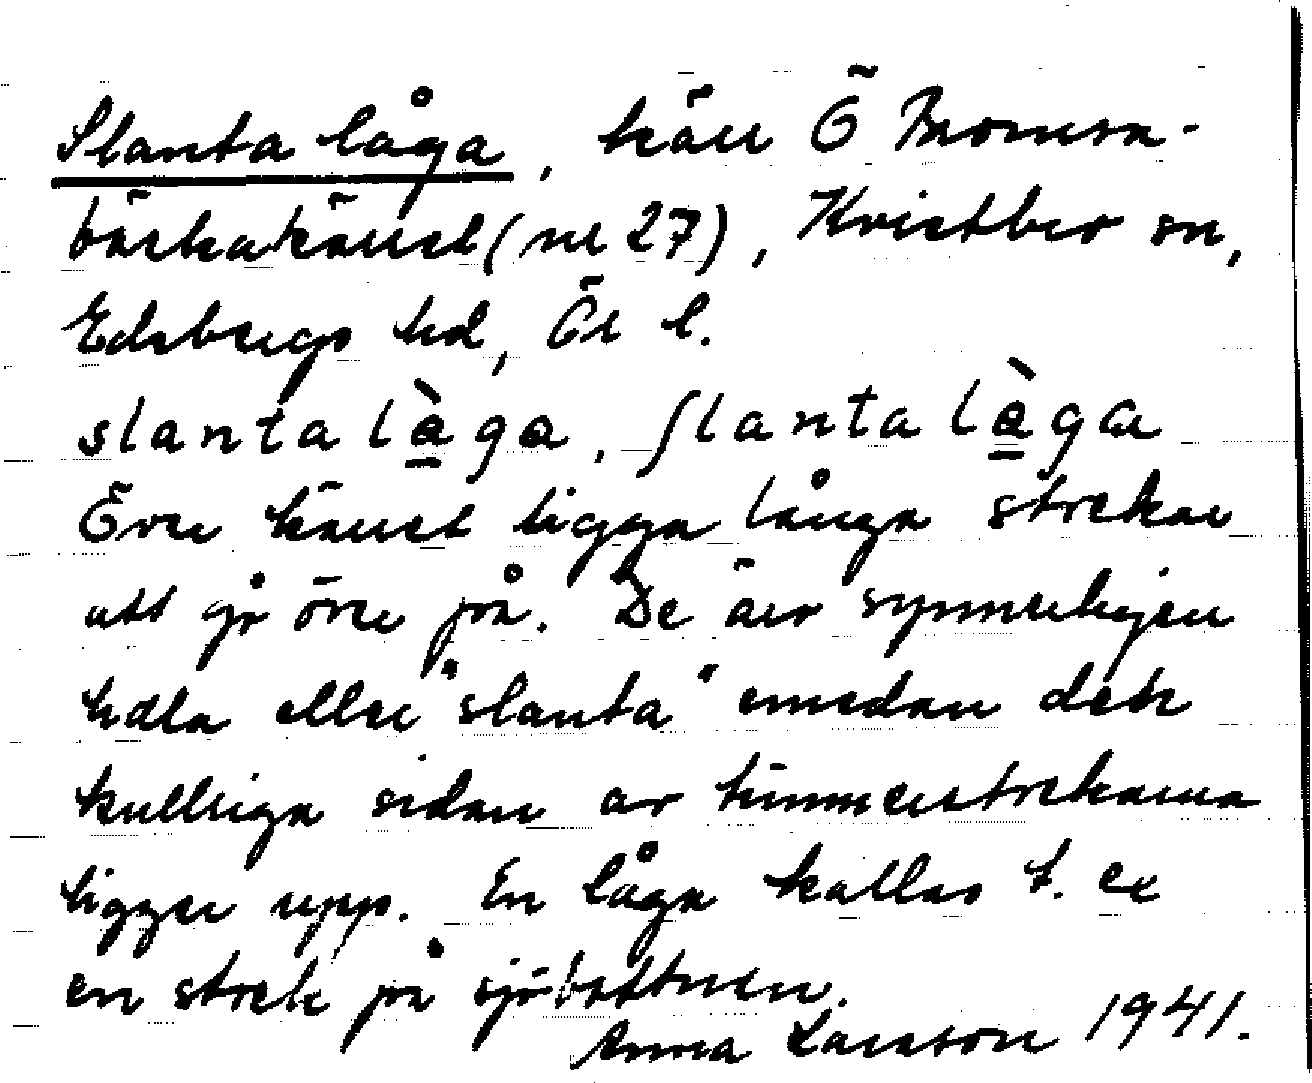 Slanta låga, kärr Ö Bromsa-
bärkakärret (nr 27), Kvistbro sn,
Edsbergs hd, Ör l.
slanta là̠ga, ʃlanta là̠gæ
Över kärret ligga långa stockar
att gå över på. De äro synnerligen
hala eller "slanta" emedan den
kulliga sidan av timmerstockarna
ligger upp. En låga kallas t. ex
en stock på sjöbottnen.
Anna Larsson 1941.